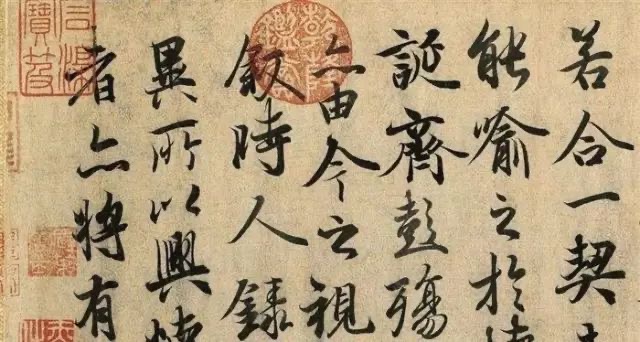 若合一契
能喻之於
誕齊彭殤
亦由今之視
叙時人錄
異所以興
者亦將有
石渠
寶笈